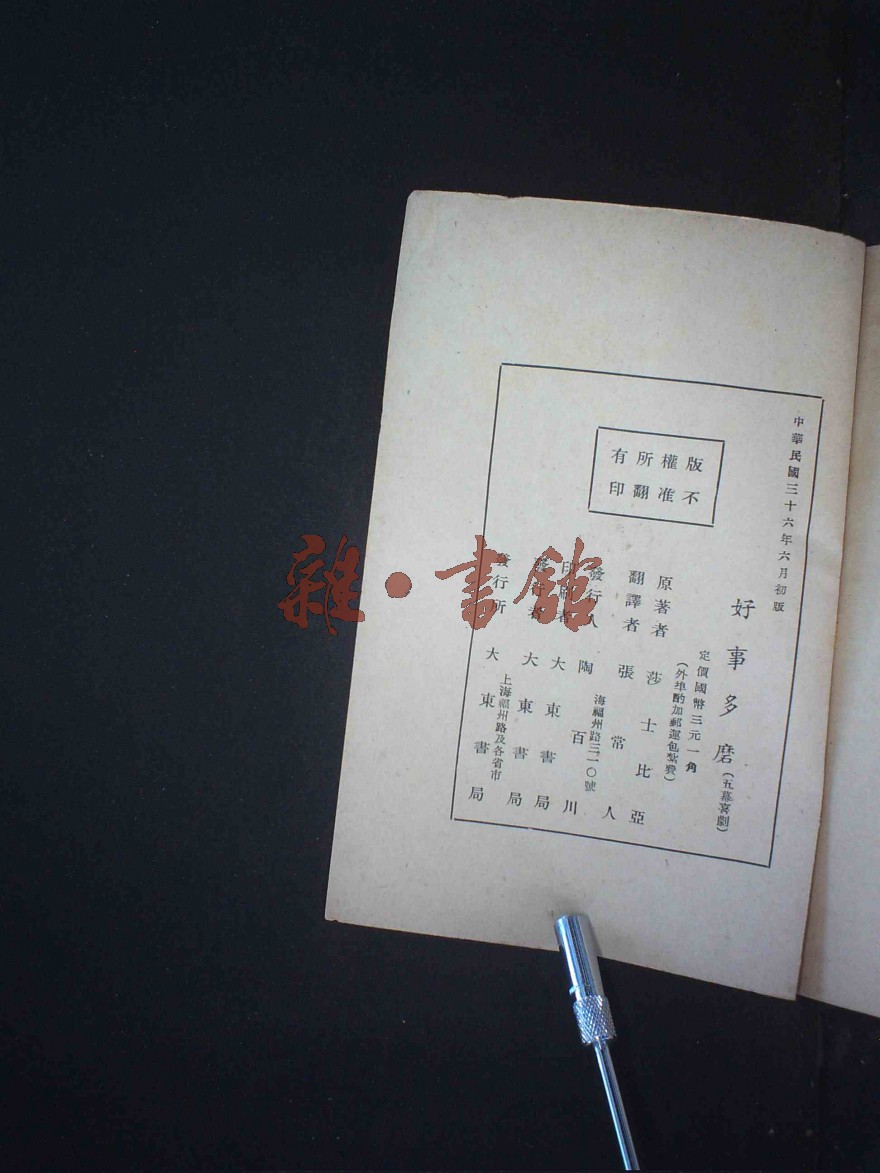 中華民國三十六年六月初版
好事多磨（五幕喜劇）
定價國幣三元一角
（外埠酌加郵運包紮費）
原著者 莎士比亞
翻譯者 張常人
發行人 陶百川
海福州路三一〇號
印刷者 大東書局
發行者 大東書局
發行所 大東書局
上海福州路及各省市
版權所有
不准翻印
雜·書館